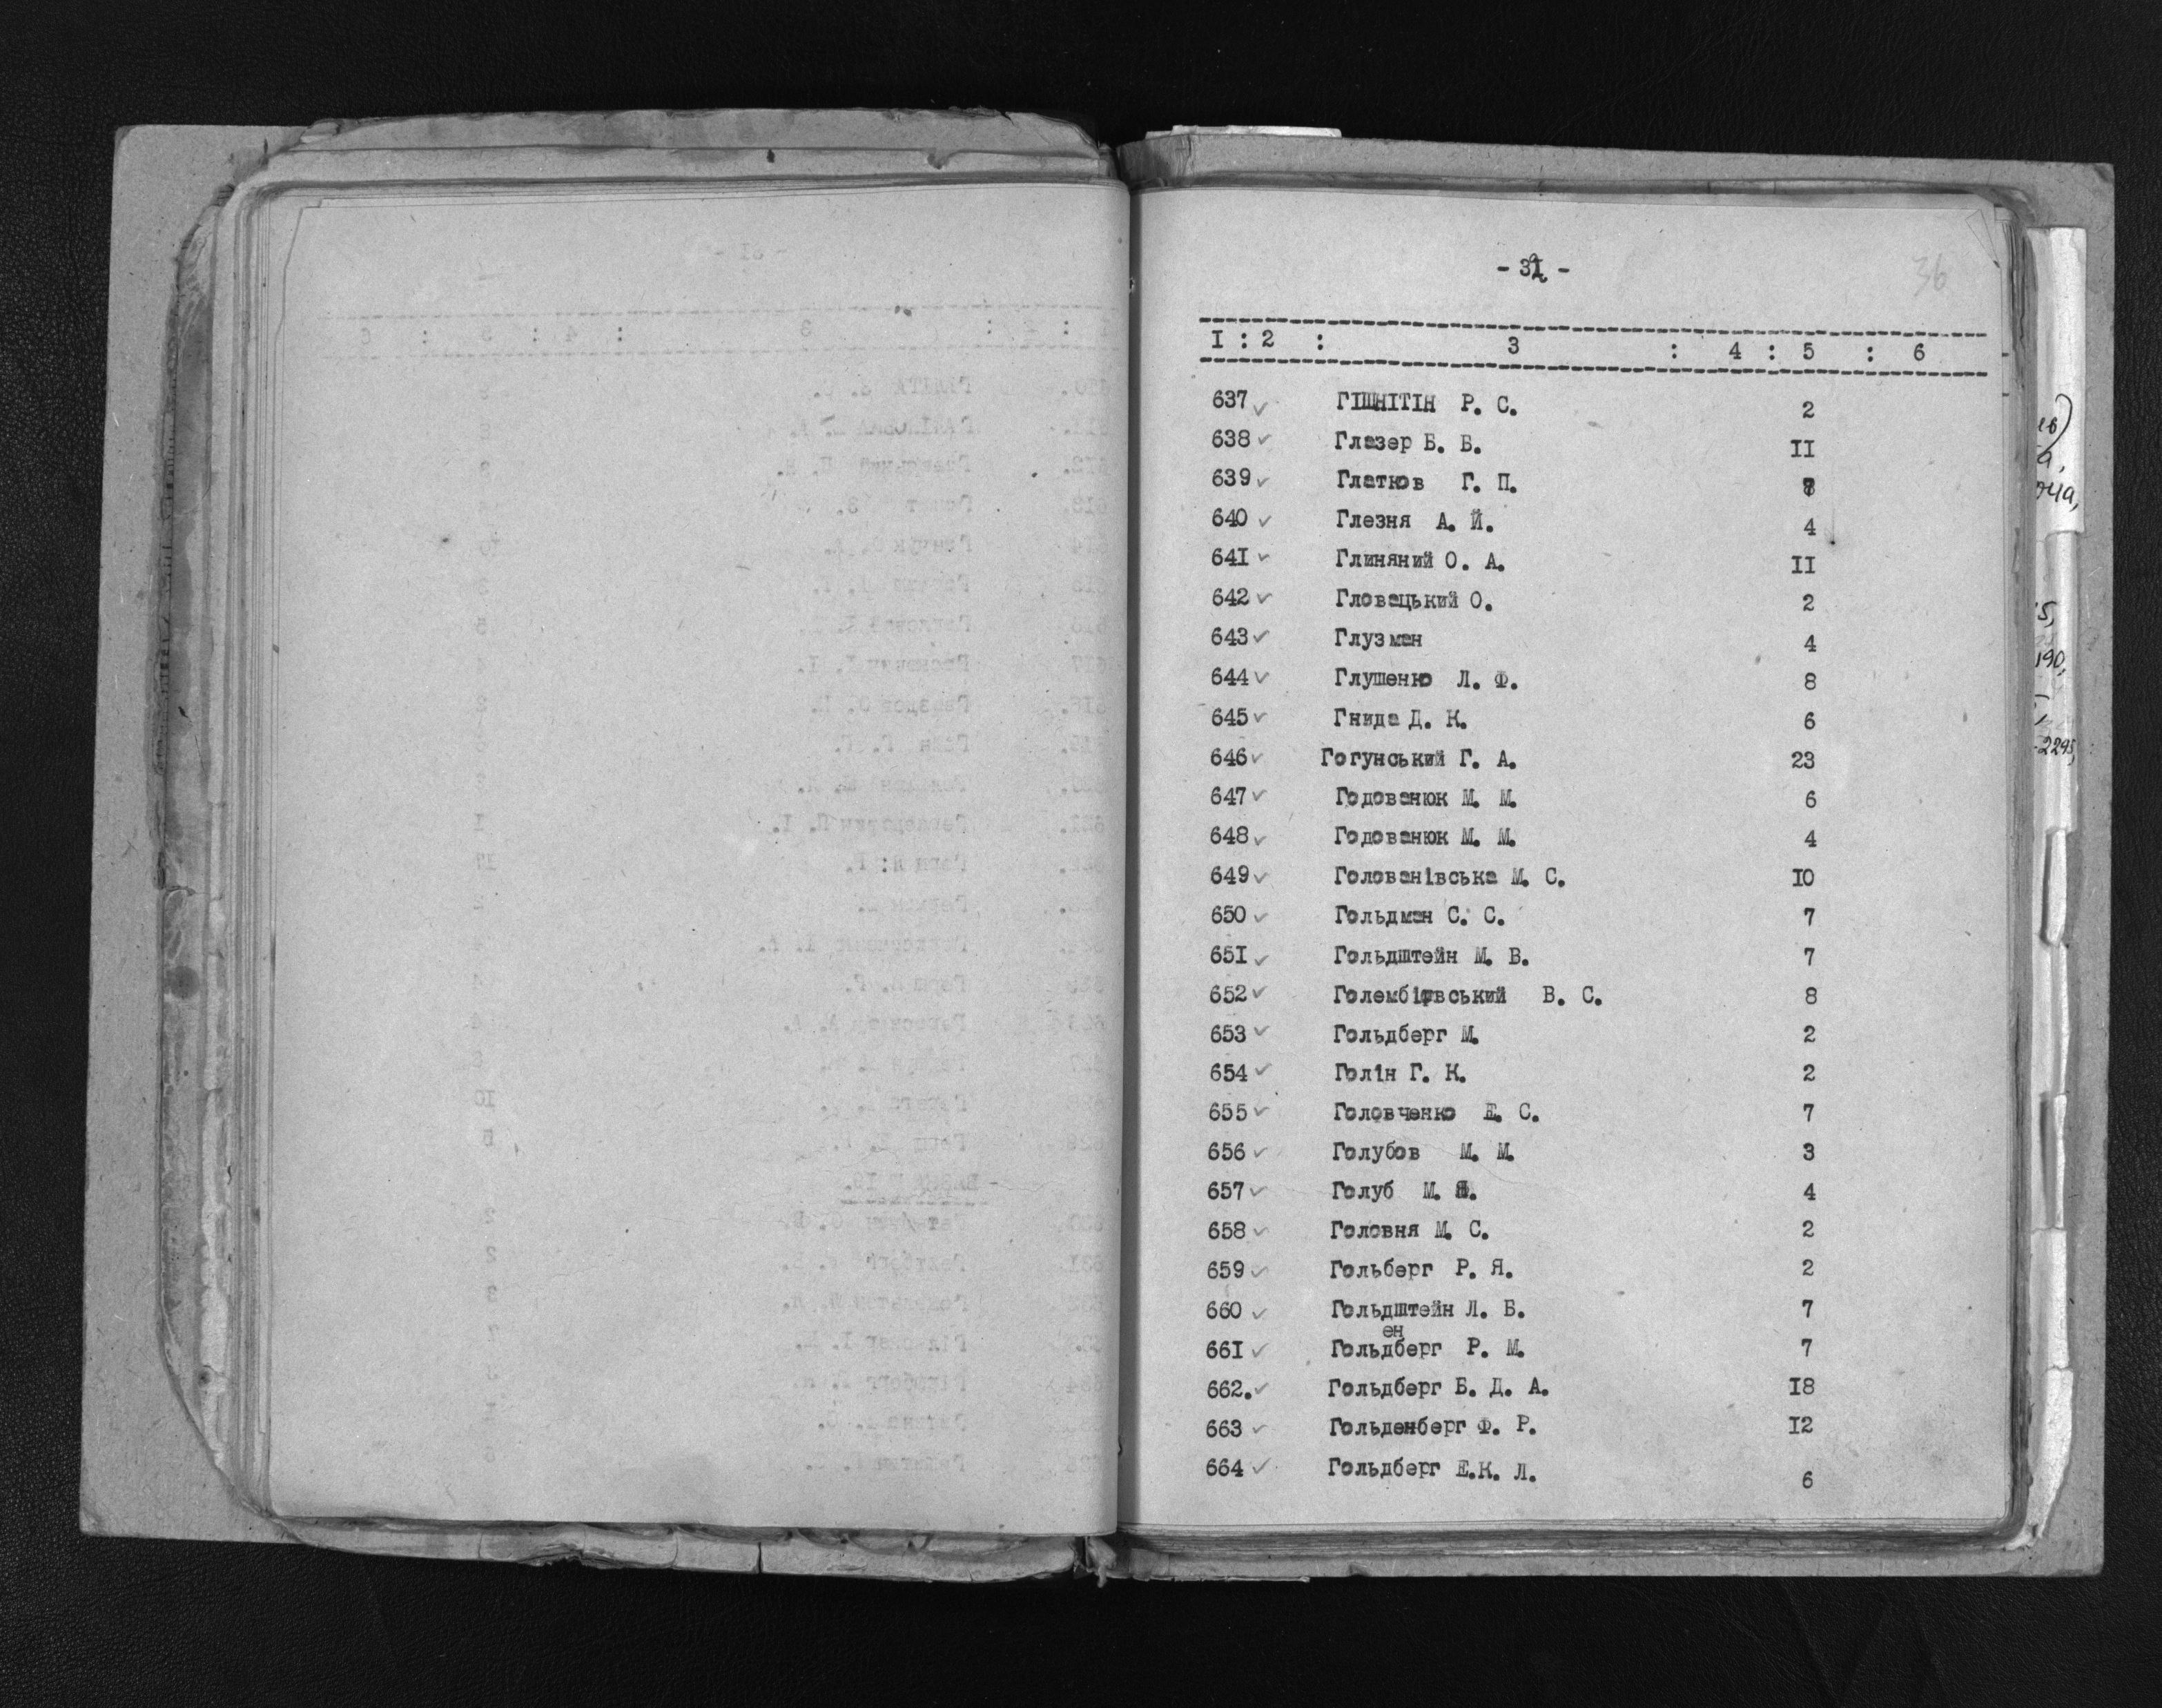 - 32 -
36
I : 2 : 3 : 4 : 5 : 6
637 ✓ ГІШНІТІН Р. С. 2
638 ✓ Глазер Б. Б. II
639 ✓ Глатков Г. П. 8
640 ✓ Глезня А. Й. 4
641 ✓ Глиняний О. А. II
642 ✓ Гловацький О. 2
643 ✓ Глузман 4
644 ✓ Глушенко Л. Ф. 8
645 ✓ Гнида Д. К. 6
646 ✓ Гогунський Г. А. 23
647 ✓ Годованюк М. М. 6
648 ✓ Годованюк М. М. 4
649 ✓ Голованівська М. С. IO
650 ✓ Гольдман С. С. 7
65I ✓ Гольдштейн М. В. 7
652 ✓ Голембієвський В. С. 8
653 ✓ Гольдберг М. 2
654 ✓ Голін Г. К. 2
655 ✓ Головченко Е. С. 7
656 ✓ Голубов М. М. 3
657 ✓ Голуб М. Я. 4
658 ✓ Головня М. С. 2
659 ✓ Гольберг Р. Я. 2
660 ✓ Гольдштейн Л. Б. 7
ен
66I ✓ Гольдберг Р. М. 7
662. ✓ Гольдберг Б. Д. А. I8
663 ✓ Гольденберг Ф. Р. I2
664 ✓ Гольдберг Е.К. Л. 6